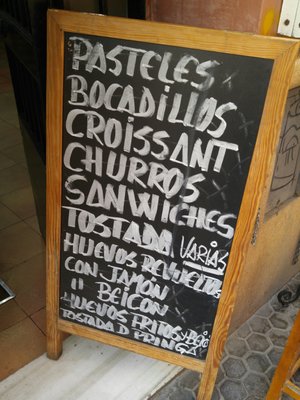 PASTELES
BOCADILLOS
CROISSANT
CHURROS
SANWICHES
TOSTADA VARIAS
HUEVOS REVUELTOS
CON JAMÓN
II BEICON
HUEVOS FRITOS Y BEIC
TOSTADA D PRINGA